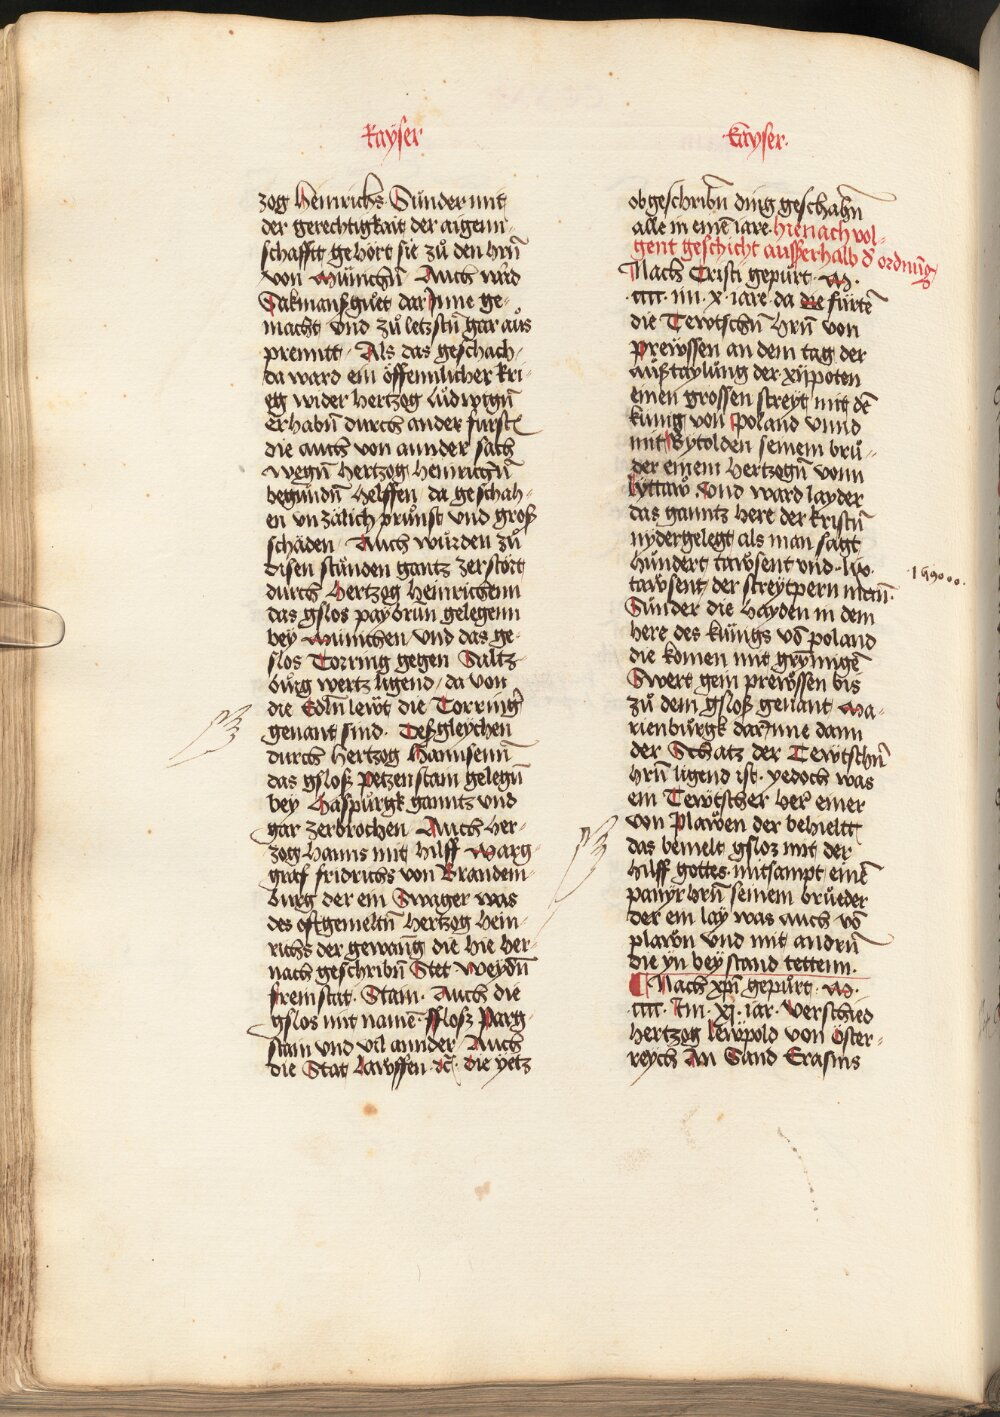 Kayser
zog Heinrichs Sunder mit
der gerechtigkait der aigenn-
schafft gehört sie zů den hrñ
von Münichñ Auch wið
Sakmansguet dar Inne ge-
macht vnd zů letzstñ gar auͦs
prennt / Als das geschach /
da ward ein öffennlicher kri-
eg wider hertzog Ludwigñ
Erhabñ durch ander furstẽ
die auch von annder sach
wegñ hertzog Heinrichñ
begundñ helffen / da geschah-
en vnzälich průnst vnd groß
schäden / Auch wůrden zů
disen stunden gantz zerstört
durch Hertzog Heinrichenn
das gslos paybrun gelegenn
bey Münichen / vnd das ge-
slos Torring gegen Saltz-
bůrg wertz ligend / da von
die Edlñ lewt die Torringẽr
genant sind. Deßgleychen
durch hertzog Hannsenñ
das gsloß petzenstain gelegñ
bey Haspůrgk ganntz vnd
gar zerbrochen / Auch her-
zog Hanns mit hilff Marg-
graf fridrichs von Brandem-
burg der ein Swager was
des oftgemeltñ hertzog Hein-
richs der gewañg die hie her-
nach geschribñ Stet weydñ
freinstat. Stain. Auch die
gslos mit namẽ ffloss parg-
stain vnd vil annder / Auch
die Stat Lawffen ꝛc̃. die yetz
Kayser.
obgeschribñ ding geschahñ
alle in einẽ iare. hienach vol-
gent geschicht ausserhalb d' ordnũg
Nach Cristi gepůrt. M.
.cccc. iiii. x. iare. da die fůrtẽ
die Tewtschñ hrñ von
prewssen an dem tag der
außtaylůng der xij poten
einen grossen streyt mit dẽ
kunig von Poland vnnd
mit Wytolden seinem brů-
der einem Hertzogñ vonn
lyttaw. Vnd ward layder
das ganntz here der kristñ
nydergelegt als man sagt
hůndert tawsent vnd. lix. .159000.
tawsent / der streytpern mañ.
Sůnder die Hayden in dem
here des kůnigs võ poland
die komen mit grymigẽ
Swert gein prewssen bis
zů dem gsloß genant Ma-
rienbůrgk dar Inne dann
der Schatz der Tewtschñ
hrñ ligend ist. yedoch was
ein Tewtscher her einer
von plawen der behieltt
das bemelt gsloz mit der
hilff gottes. mitsampt einẽ
panyrhrñ seinem brueder
der ein lay was auch võ
plawn vnd mit andrñ
die yn beystand tettenn.
Nach xp̃ı gepůrt. M.
.cccc. Im. xj. iar. Verschied
hertzog Lewpold von Öster-
reych An Sand Erasms